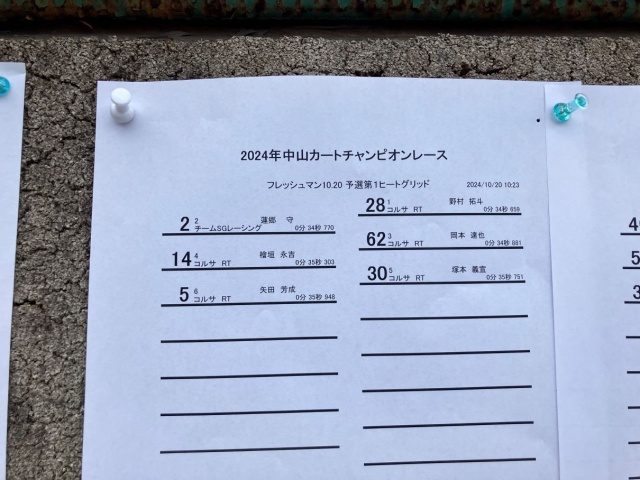 2024年中山カートチャンピオンレース
フレッシュマン10.20 予選第1ヒートグリッド 2024/10/20 10:23
28 1 野村 拓斗
コルサ RT 0分 34秒 659
2 2 蓮郷 守
チームSGレーシング 0分 34秒 770
62 3 岡本 達也
コルサ RT 0分 34秒 881
14 4 檜垣 永吉
コルサ RT 0分 35秒 303
30 5 塚本 義宣
コルサ RT 0分 35秒 751
5 6 矢田 芳成
コルサ RT 0分 35秒 948